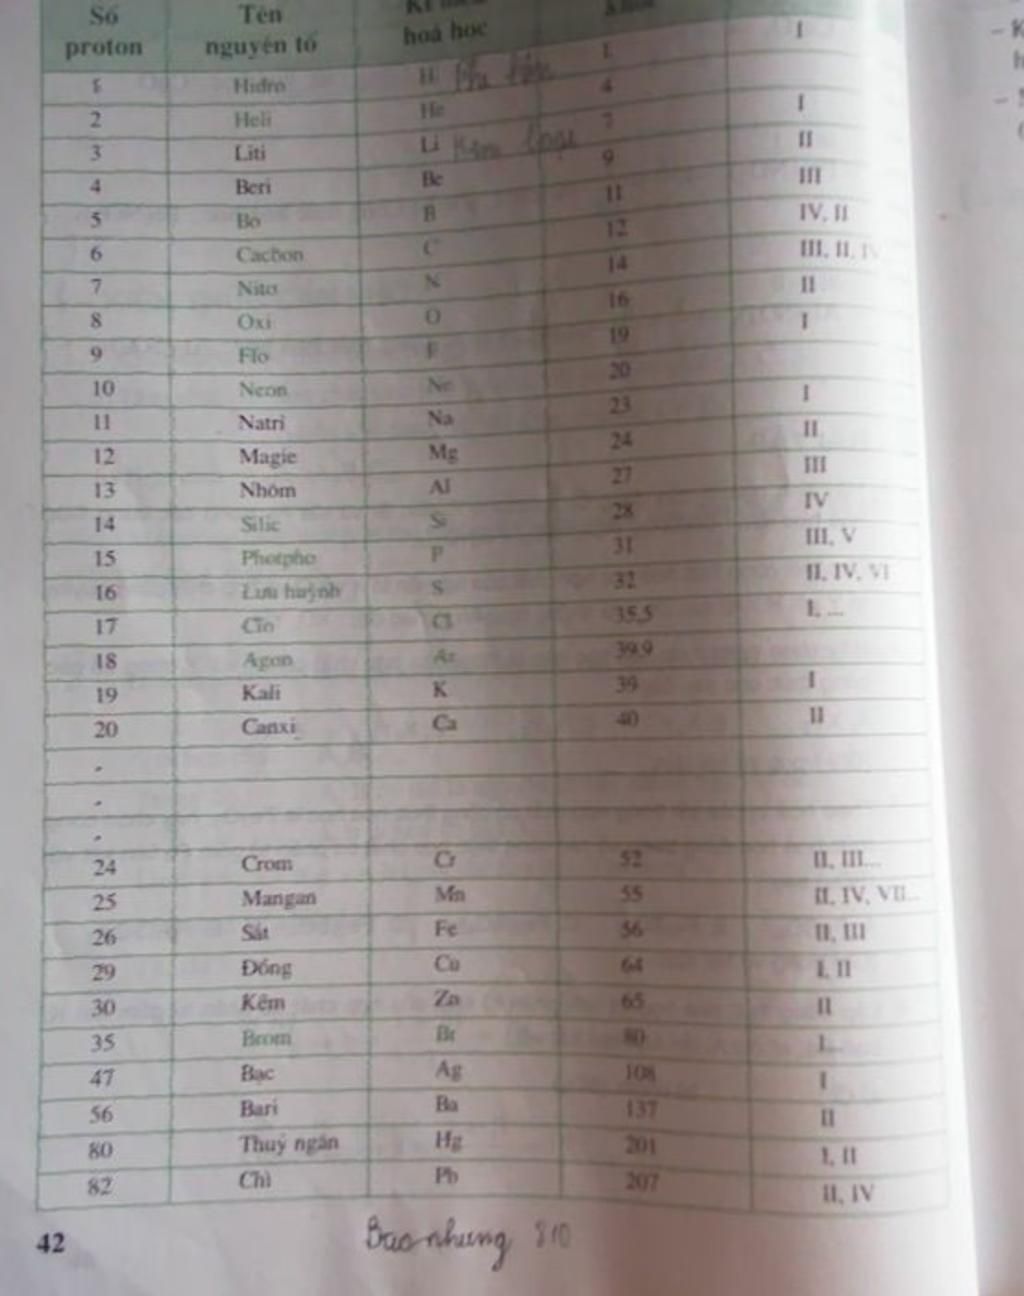 Số proton Tên nguyên tố Kí hiệu hoá học khối
1 Hiđro H Phi kim 1 I
2 Heli He 4
3 Liti Li Kim loại 7 I
4 Beri Be 9 II
5 Bo B 11 III
6 Cacbon C 12 IV, II
7 Nitơ N 14 III, II, IV
8 Oxi O 16 II
9 Flo F 19 I
10 Neon Ne 20
11 Natri Na 23 I
12 Magie Mg 24 II
13 Nhôm Al 27 III
14 Silic Si 28 IV
15 Photpho P 31 III, V
16 Lưu huỳnh S 32 II, IV, VI
17 Clo Cl 35,5 I, ...
18 Agon Ar 39,9
19 Kali K 39 I
20 Canxi Ca 40 II
.
.
.
24 Crom Cr 52 II, III...
25 Mangan Mn 55 II, IV, VII...
26 Sắt Fe 56 II, III
29 Đồng Cu 64 I, II
30 Kẽm Zn 65 II
35 Brom Br 80 I...
47 Bạc Ag 108 I
56 Bari Ba 137 II
80 Thuỷ ngân Hg 201 I, II
82 Chì Pb 207 II, IV
42 Bao nhung 810